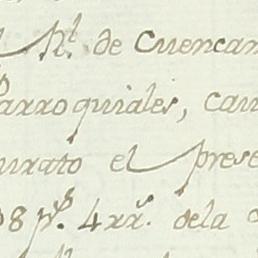 Rl. de Cuencam
Parroquiales, cau
urato el prese
98 ps. 4 rrs. dela